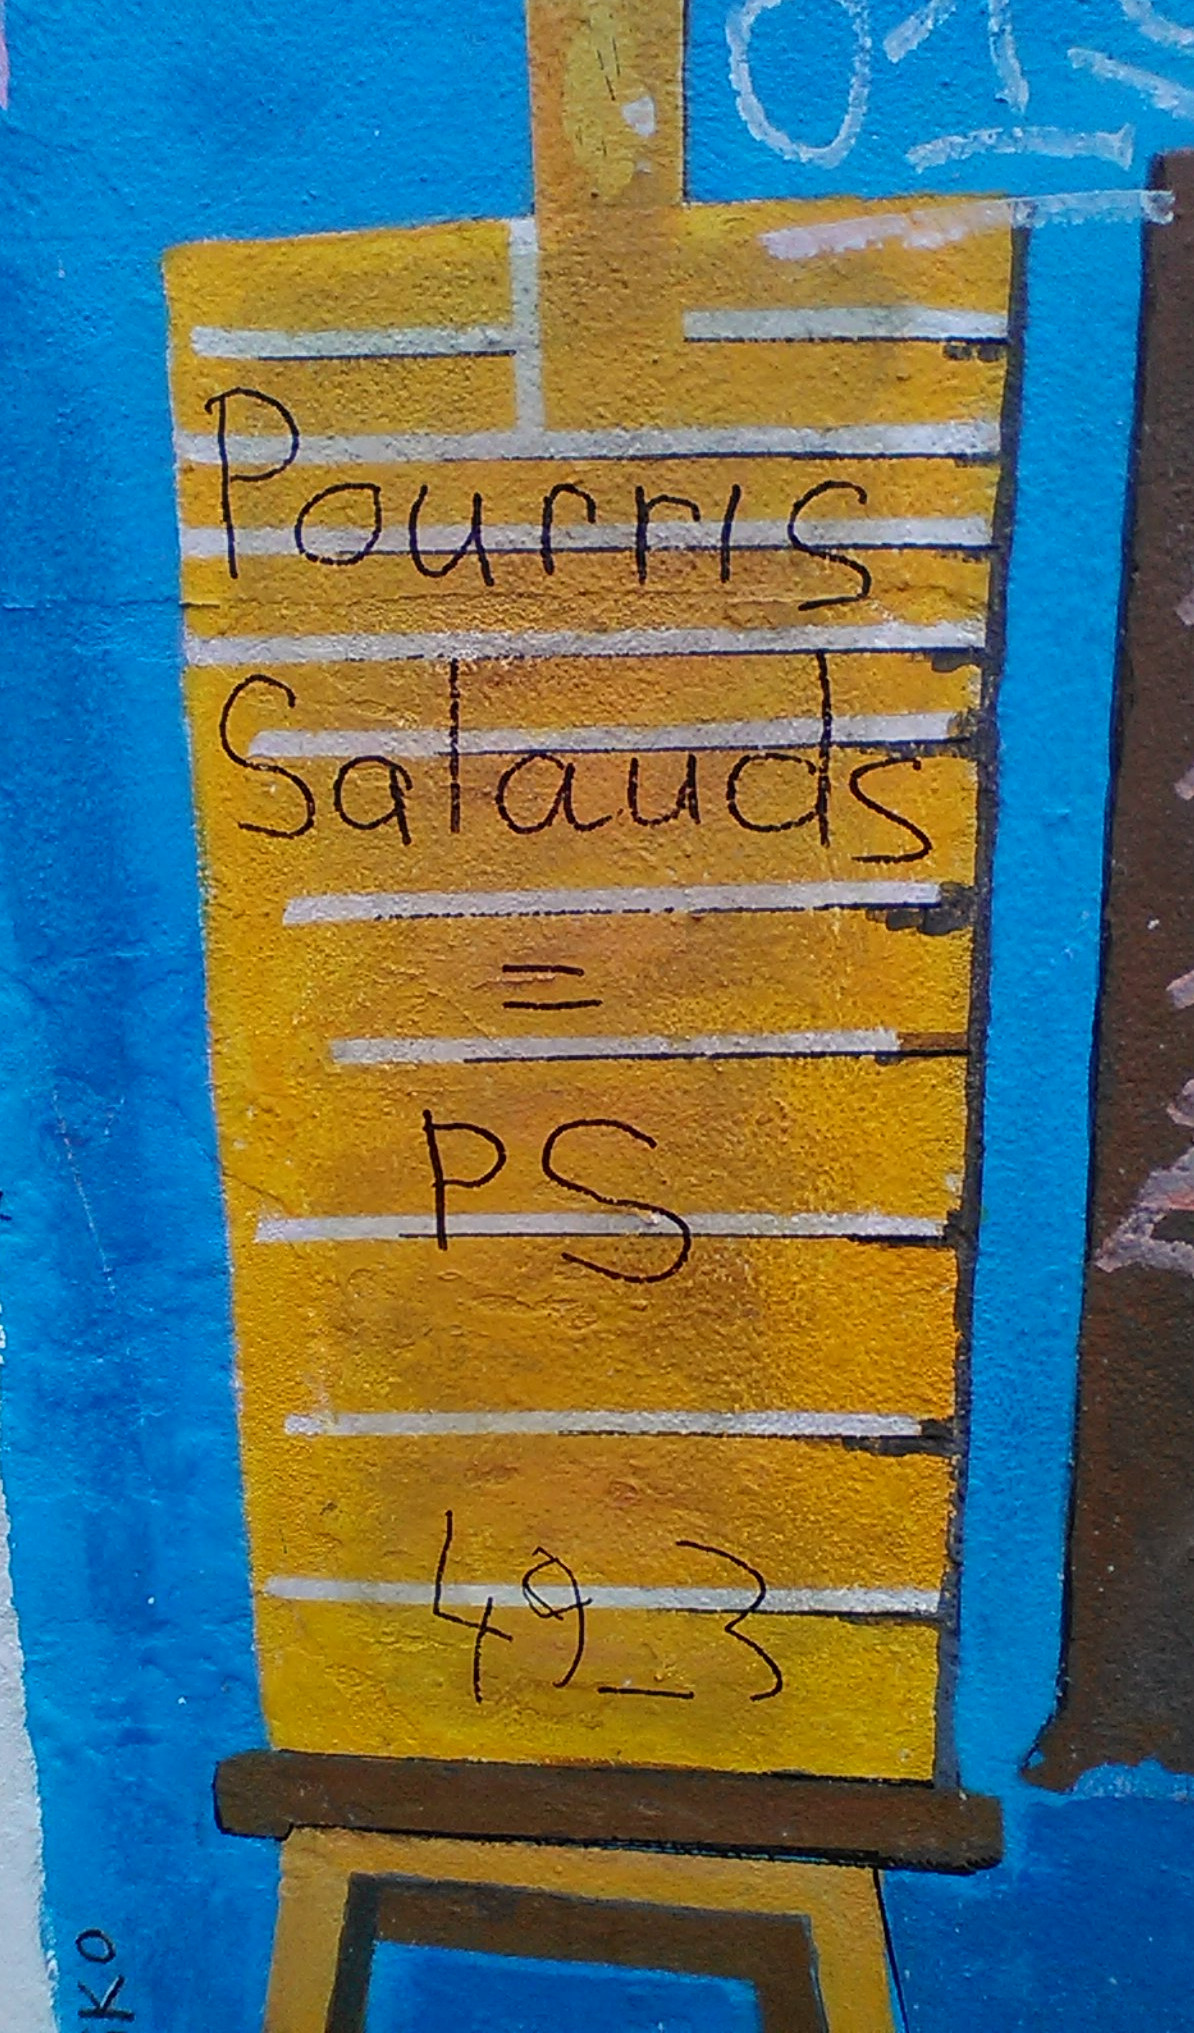 Pourris
Salauds
=
PS
49_3